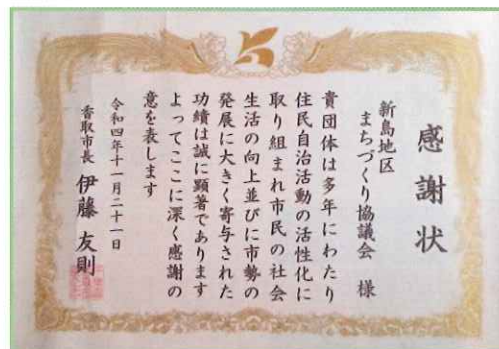 感謝状
新島地区
まちづくり協議会 様
貴団体は多年にわたり
住民自治活動の活性化に
取り組まれ市民の社会
生活の向上並びに市勢の
発展に大きく寄与された
功績は誠に顕著であります
よってここに深く感謝の
意を表します
令和四年十一月二十一日
香取市長 伊藤 友則